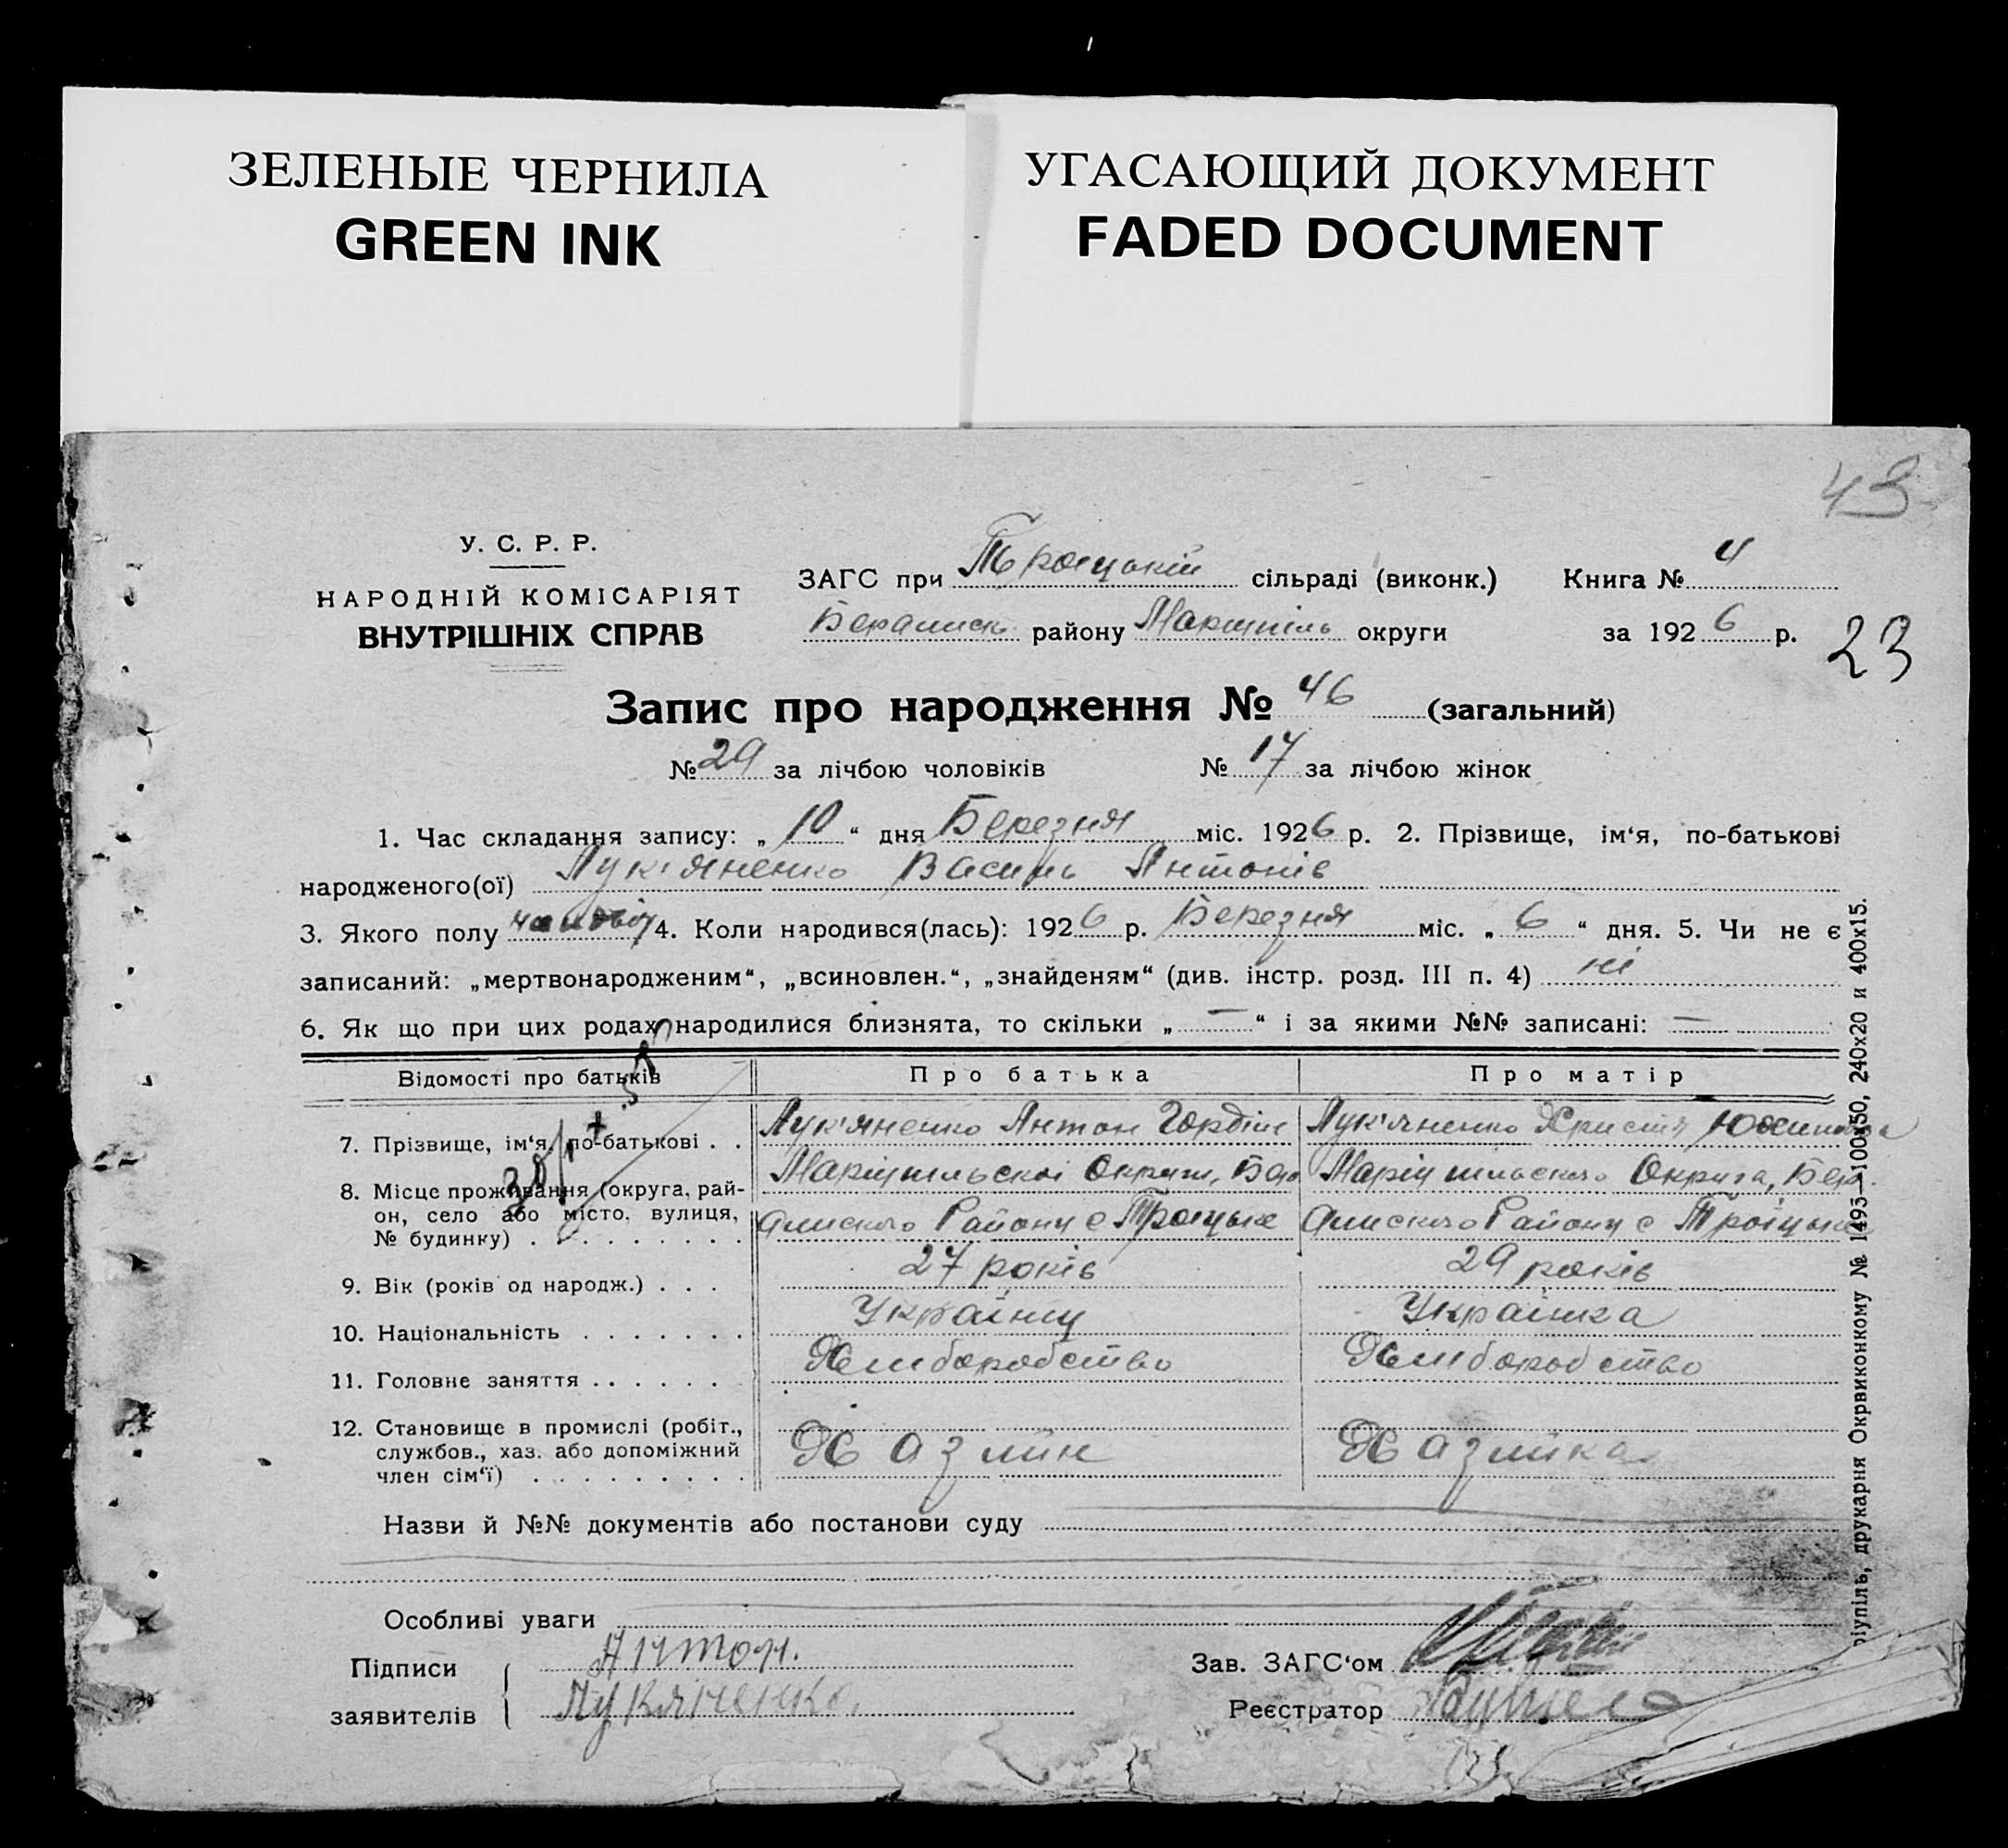 ЗЕЛЕНЫЕ ЧЕРНИЛА
GREEN INK
УГАСАЮЩИЙ ДОКУМЕНТ
FADED DOCUMENT
43
У. С. Р. Р.
НАРОДНІЙ КОМІСАРІЯТ
ВНУТРІШНІХ СПРАВ
ЗАГС при Троіцькій сільраді (виконк.) Книга № 4
району Маріупіль округи за 1926 р.
23
Запис про народження № 46 (загальний)
№ 29 за лічбою чоловіків № 17 за лічбою жінок
1. Час складання запису: „10“ дня Березня міс. 1926 р. 2. Прізвище, ім‘я, по-батькові
народженого(ої) Лук'яненко Василь Антонів
3. Якого полу 4. Коли народився(лась): 1926 р. Березня міс. „6“ дня. 5. Чи не є
записаний: „мертвонародженим“, „всиновлен.“, „знайденям“ (див. інстр. розд. III п. 4) ні
6. Як що при цих родах народилися близнята, то скільки „—“ і за якими №№ записані: —
Відомості про батьків Про батька Про матір
7. Прізвище, ім‘я, по-батькові . . Лук'яненко Антон Гордіів Лук'яненко Христя
8. Місце проживання (округа, рай-
он, село або місто, вулиця,
№ будинку) . . . . . . . . .
Маріупільскоі Округи, Маріупільского Округа,
Району с Троіцьке Району с Троіцьке
9. Вік (років од народж.) . . . 27 років 29 років
10. Національність . . . . . . . Українц Українка
11. Головне заняття . . . . . . Хліборобство Хліборобство
12. Становище в промислі (робіт.,
службов., хаз. або допоміжний
член сім‘ї) . . . . . . . . .
Хазяїн Хазяйка
Назви й №№ документів або постанови суду
Особливі уваги
Підписи
заявителів
Антон.
Лукяненко.
Зав. ЗАГС‘ом
Реєстратор
ріупіль, друкарня Окрвиконкому № 1493—100х50, 240х20 и 400х15.